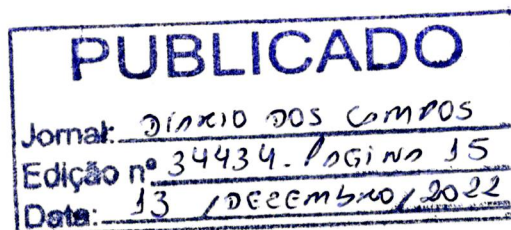 PUBLICADO
Jornal: DIÁRIO DOS CAMPOS
Edição nº 34434. PÁGINA 15
Data: 13 / DEZEMBRO / 2022